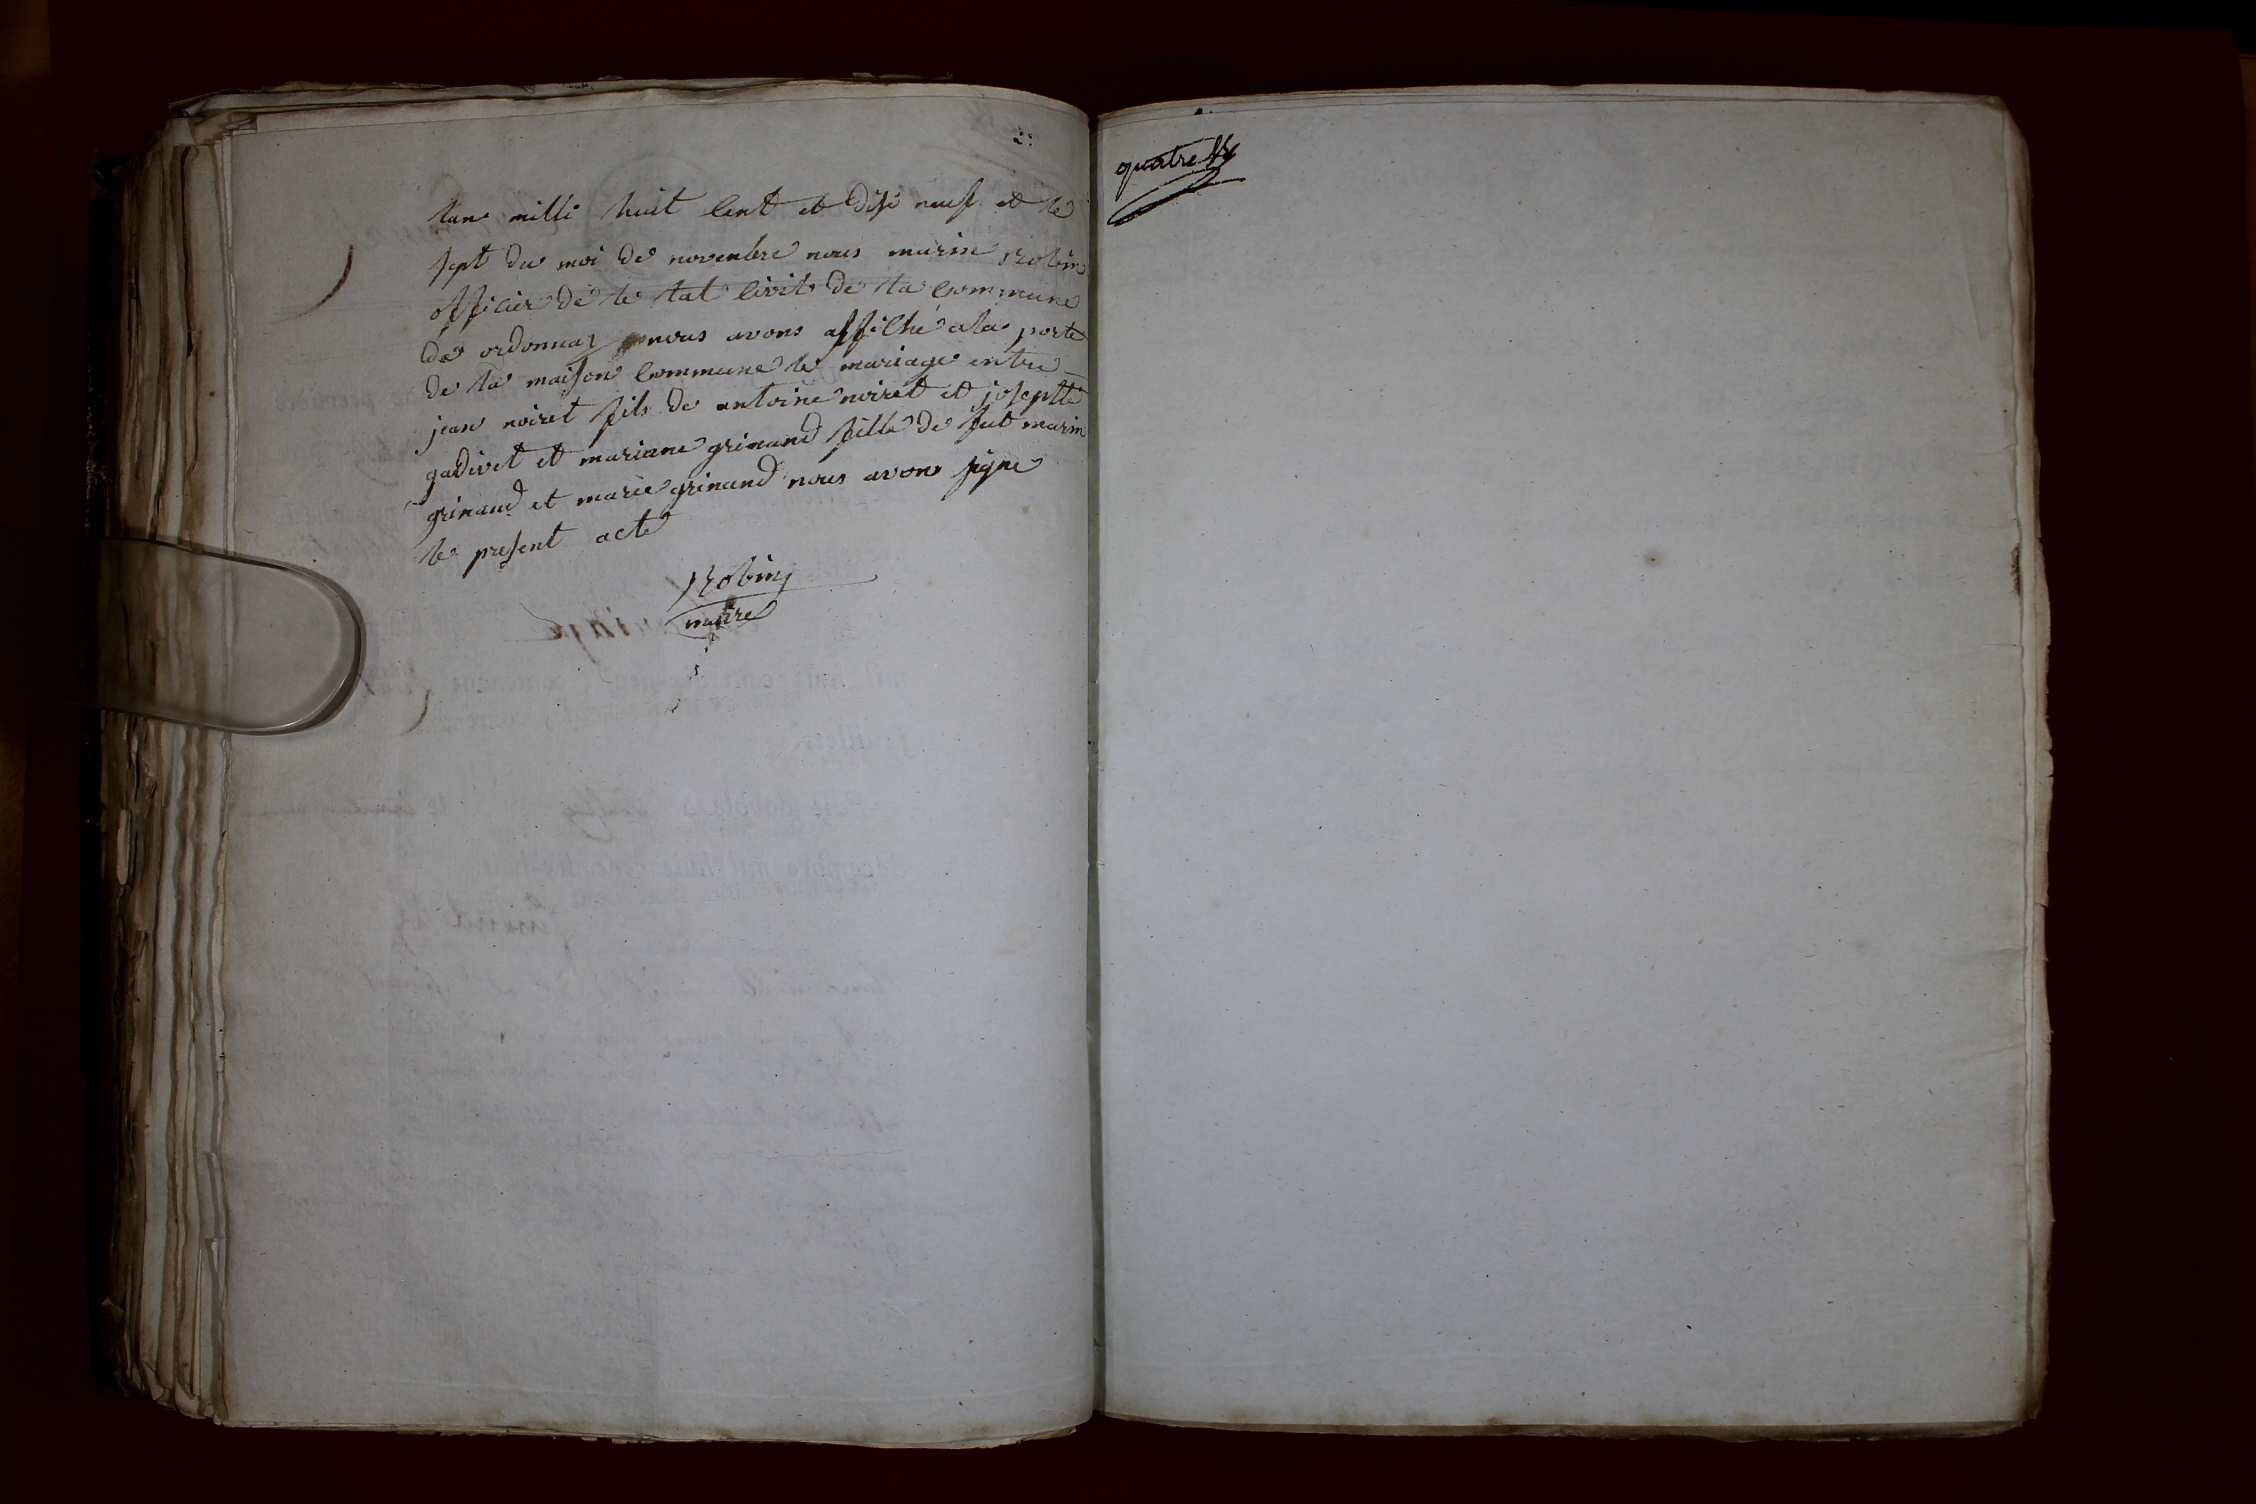 lan milli huit Cent et dise neuf et le
sept du moi de novenbre nous marin Robin
officier de le tat Civil de la Commune
de ordonnaz nous avons affiché a la porte
de la maison Commune le mariage entre
jean noiret fils de antoine noiret et joseptte
gadivet et mariane grinand fille de fut marin
grinand et marie grinand nous avons signe
le present acte
Robin
maire
quatre